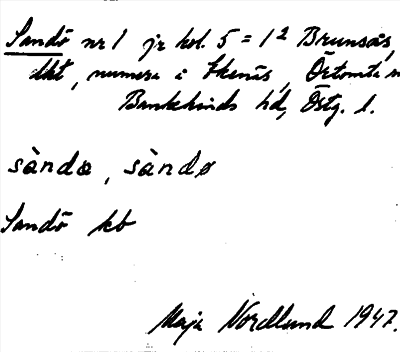 Sandö nr 1 jr kol. 5 = 1² Brunsås,
dkt, numera i Ekenäs, Örtomta
Bankekinds hd, Östg. l.
sàndœ, sàndø
Sandö kb
Maja Nordlund 1947.